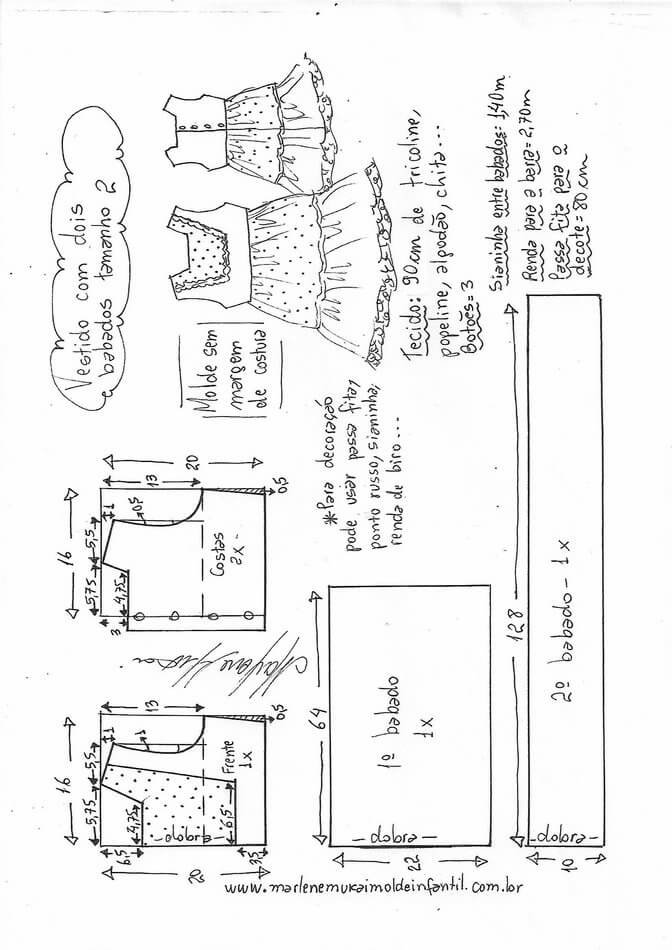 Vestido com dois
babados tamanho 2
Molde sem
margem
de costura
Tecido: 90cm de tricoline,
popeline, algodão, chita...
Botões=3
Sianinha entre babados= 1,40m
Renda para a barra= 2,70m
Passa fita para o
decote= 80cm
*Para decoração
pode usar passa fita,
ponto russo, sianinha,
renda de biro...
16
5,75
5,5
1
13
20
0,5
4,75
3
0,5
Costas
2x
16
5,75
5,5
1
13
1
4,75
6,5
6,5
3,5
20
0,5
Frente
1x
dobra
64
1º babado
1x
dobra
22
128
2º babado - 1x
dobra
10
www.marlenemukaimoldeinfantil.com.br